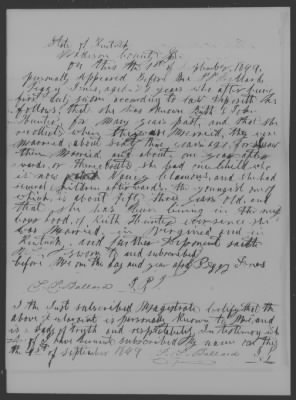 State of Kentucky
Madison County Sct.
On this the 1st of September, 1849,
personally appeared before me
Peggy Jones, aged years who after being
first duly sworn according to law deposeth as
follows, that she has known Keith &
Hunter, for many years past, and that she
recollects when they were married, they were
married about sixty three years ago, for I saw
them married, and about one year after
wards, she had one child who
is now Nancy Clemmons, and she had
several children afterwards, the youngest one of
which is about fifty three years old, and
that she has been living in the neigh
bour hood of Keith Hunter ever since she
was married, in Virginia and in
Kentucky, and further deponent saith
not Sworn to and subscribed
before me on the day and year above Peggy Jones
Ballard J.P.
I the Just subscribed Magistrate certify that the
above is personally known to me, and
is a lady of truth and respectability In testimony wh
ereof I have hereunto subscribed my name on this
the 1st of September 1849
Ballard